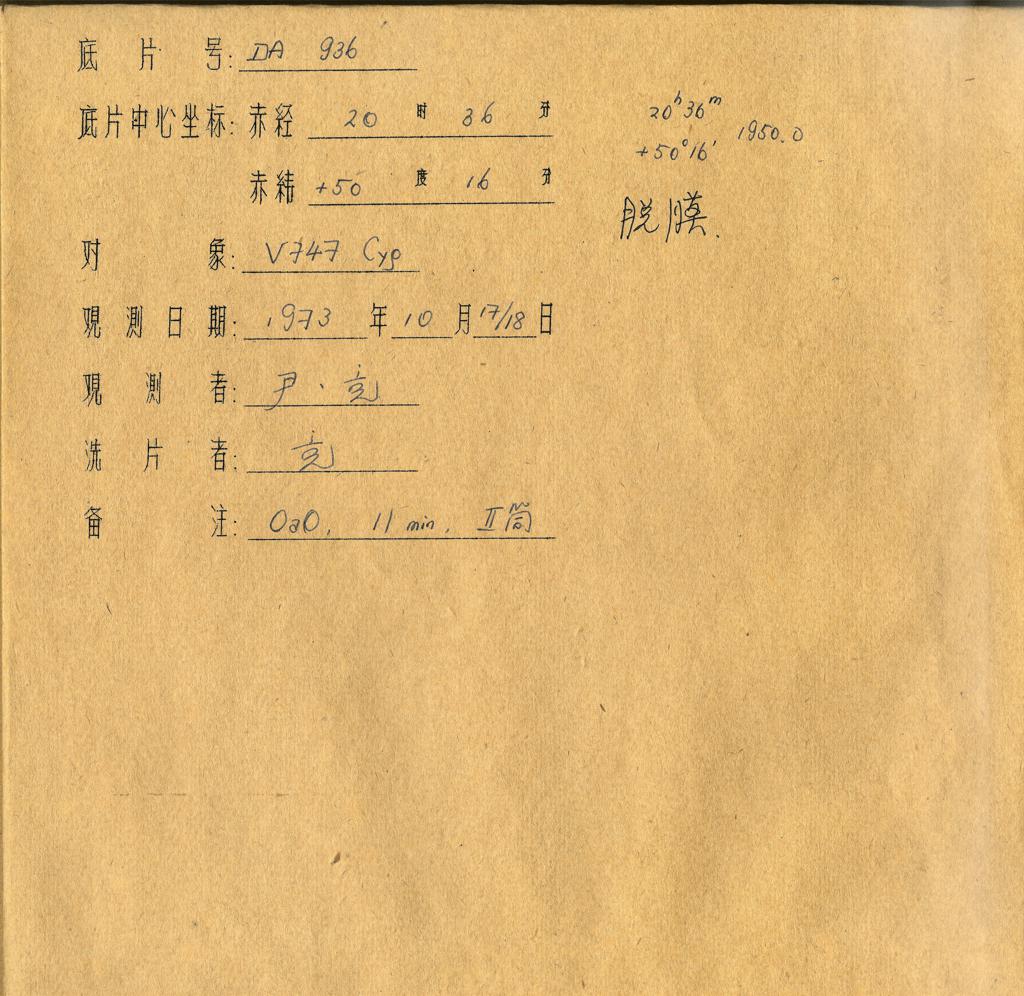 底片号: DA 936
底片中心坐标: 赤经 20 时 36 分
赤纬 +50 度 16 分
20ʰ36ᵐ
+50°16′ 1950.0
脱膜.
对象: V747 Cyg
观测日期: 1973 年 10 月 17/18 日
观测者: 尹·亮
洗片者: 亮
备注: OaO, 11 min, II筒